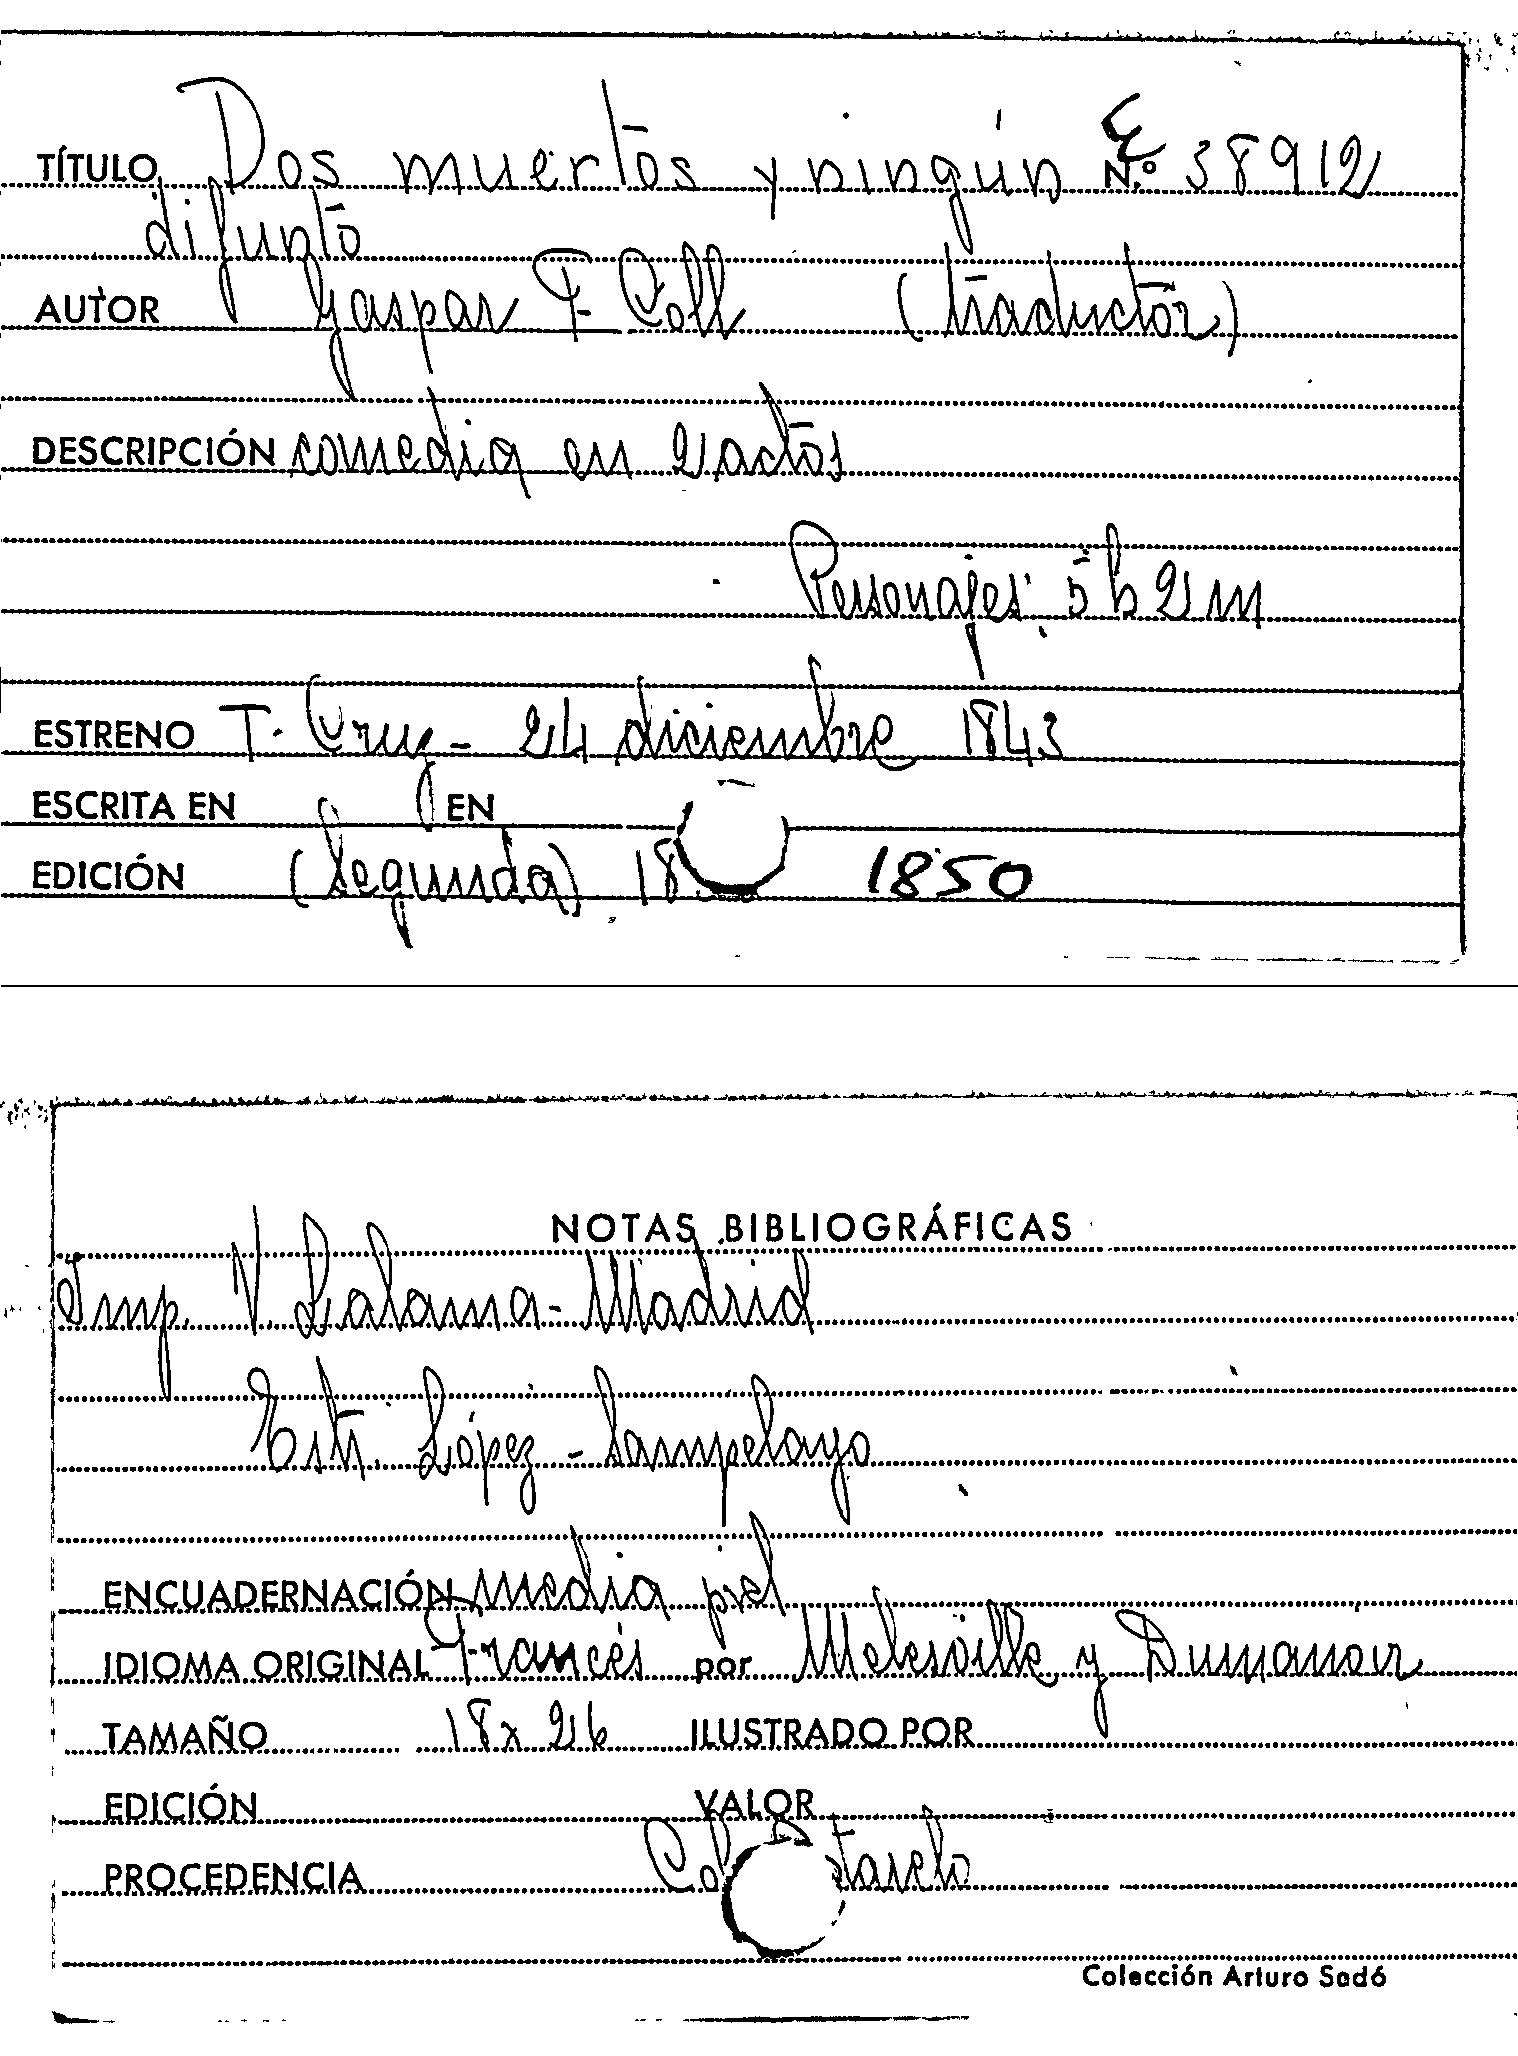 TÍTULO Dos muertos y ningún N.º 38912
difunto
AUTOR Gaspar F. Coll (traductor)
DESCRIPCIÓN comedia en 2 actos
Personajes: 5 h 2 m
ESTRENO T. Cruz - 24 diciembre 1843
ESCRITA EN EN
EDICIÓN (Segunda) 18 1850
NOTAS BIBLIOGRÁFICAS
Imp. V. Lalama - Madrid
Estr. López - Sampelayo
ENCUADERNACIÓN media piel
IDIOMA ORIGINAL Francés por Melesville y Dumanoir
TAMAÑO 18 x 26 ILUSTRADO POR
EDICIÓN VALOR
PROCEDENCIA
Colección Arturo Sedó